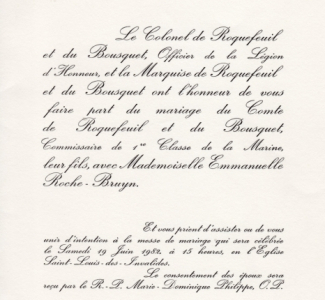 Le Colonel de Roquefeuil
et du Bousquet, Officier de la Légion
d'Honneur, et la Marquise de Roquefeuil
et du Bousquet ont l'honneur de vous
faire part du mariage du Comte
de Roquefeuil et du Bousquet,
Commissaire de 1re Classe de la Marine,
leur fils, avec Mademoiselle Emmanuelle
Roche-Bruyn.
Et vous prient d'assister ou de vous
unir d'intention à la messe de mariage qui sera célébrée
le Samedi 19 Juin 1982, à 15 heures, en l'Eglise
Saint-Louis-des-Invalides.
Le consentement des époux sera
reçu par le R.-P. Marie-Dominique Philippe, O.P.